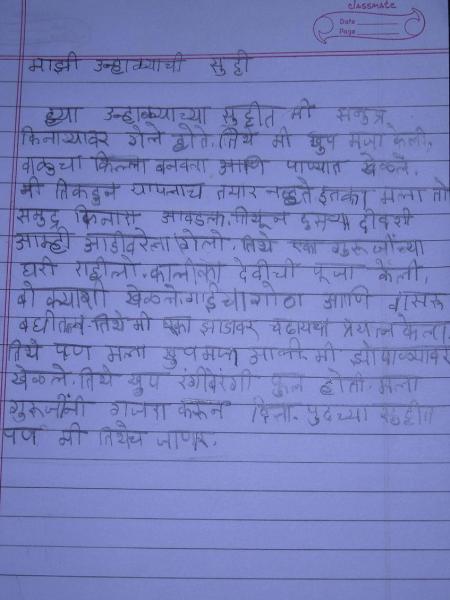 classmate
Date
Page
माझी उन्हाळ्याची सुट्टी
ह्या उन्हाळ्याच्या सुट्टीत मी समुद्र
किनाऱ्यावर गेले होते. तिथे मी खुप मजा केली.
वाळुचा किल्ला बनवला. आणि पाण्यात खेळले.
मी तिकडुन यायलाच तयार नव्हते इतका मला तो
समुद्र किनारा आवडला. तिथून दुसऱ्या दीवशी
आम्ही आडीवरेला गेलो. तिथे एका गुरूजींच्या
घरी राहीलो. कालीका देवीची पूजा केली.
बोक्याशी खेळले. गाईचा गोठा आणि वासरू
बघीतलं. तिथे मी एका झाडावर चढायचा प्रयत्न केला.
तिथे पण मला खुप मजा आली. मी झोपाळ्यावर
खेळले. तिथे खुप रंगीबेरंगी फुलं होती. मला
गुरूजींनी गजरा करून दिला. पुढच्या सुट्टीत
पण मी तिथेच जाणार.